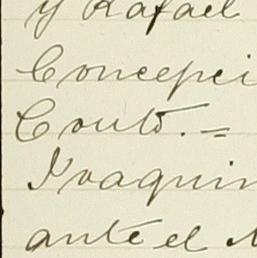 y Rafael
Concepci
Couto. =
Joaquin
ante el